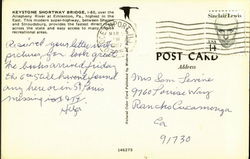 KEYSTONE SHORTWAY BRIDGE, I-80, over the
Allegheny River at Emlenton, Pa., highest in the
East. This modern super-highway, between Sharon
and Stroudsburg, provides the fastest direct route
across the state and easy access to many
recreational areas.
Sinclair Lewis
14
POST CARD
Address
Received your letter with
picture, you look great
the books arrived Friday
the 6th Still haven't found
any here or in St Louis
Miss Sem Levine
9760 Lomas Way
Rancho Cucamonga
Ca
91730
146273